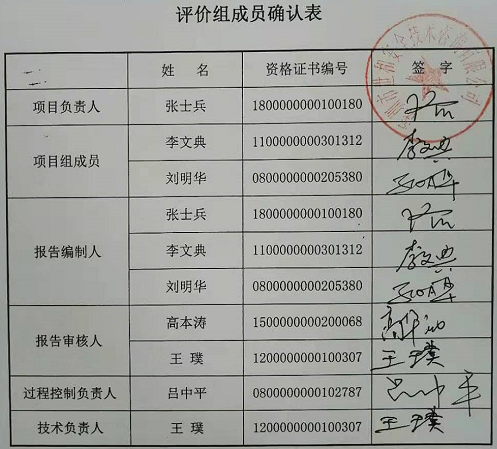 评价组成员确认表
姓 名 资格证书编号 签 字
项目负责人 张士兵 1800000000100180
项目组成员 李文典 1100000000301312 李文典
刘明华 0800000000205380 刘明华
报告编制人 张士兵 1800000000100180
李文典 1100000000301312 李文典
刘明华 0800000000205380 刘明华
报告审核人 高本涛 1500000000200068
王 璞 1200000000100307 王璞
过程控制负责人 吕中平 0800000000102787 吕中平
技术负责人 王 璞 1200000000100307 王璞